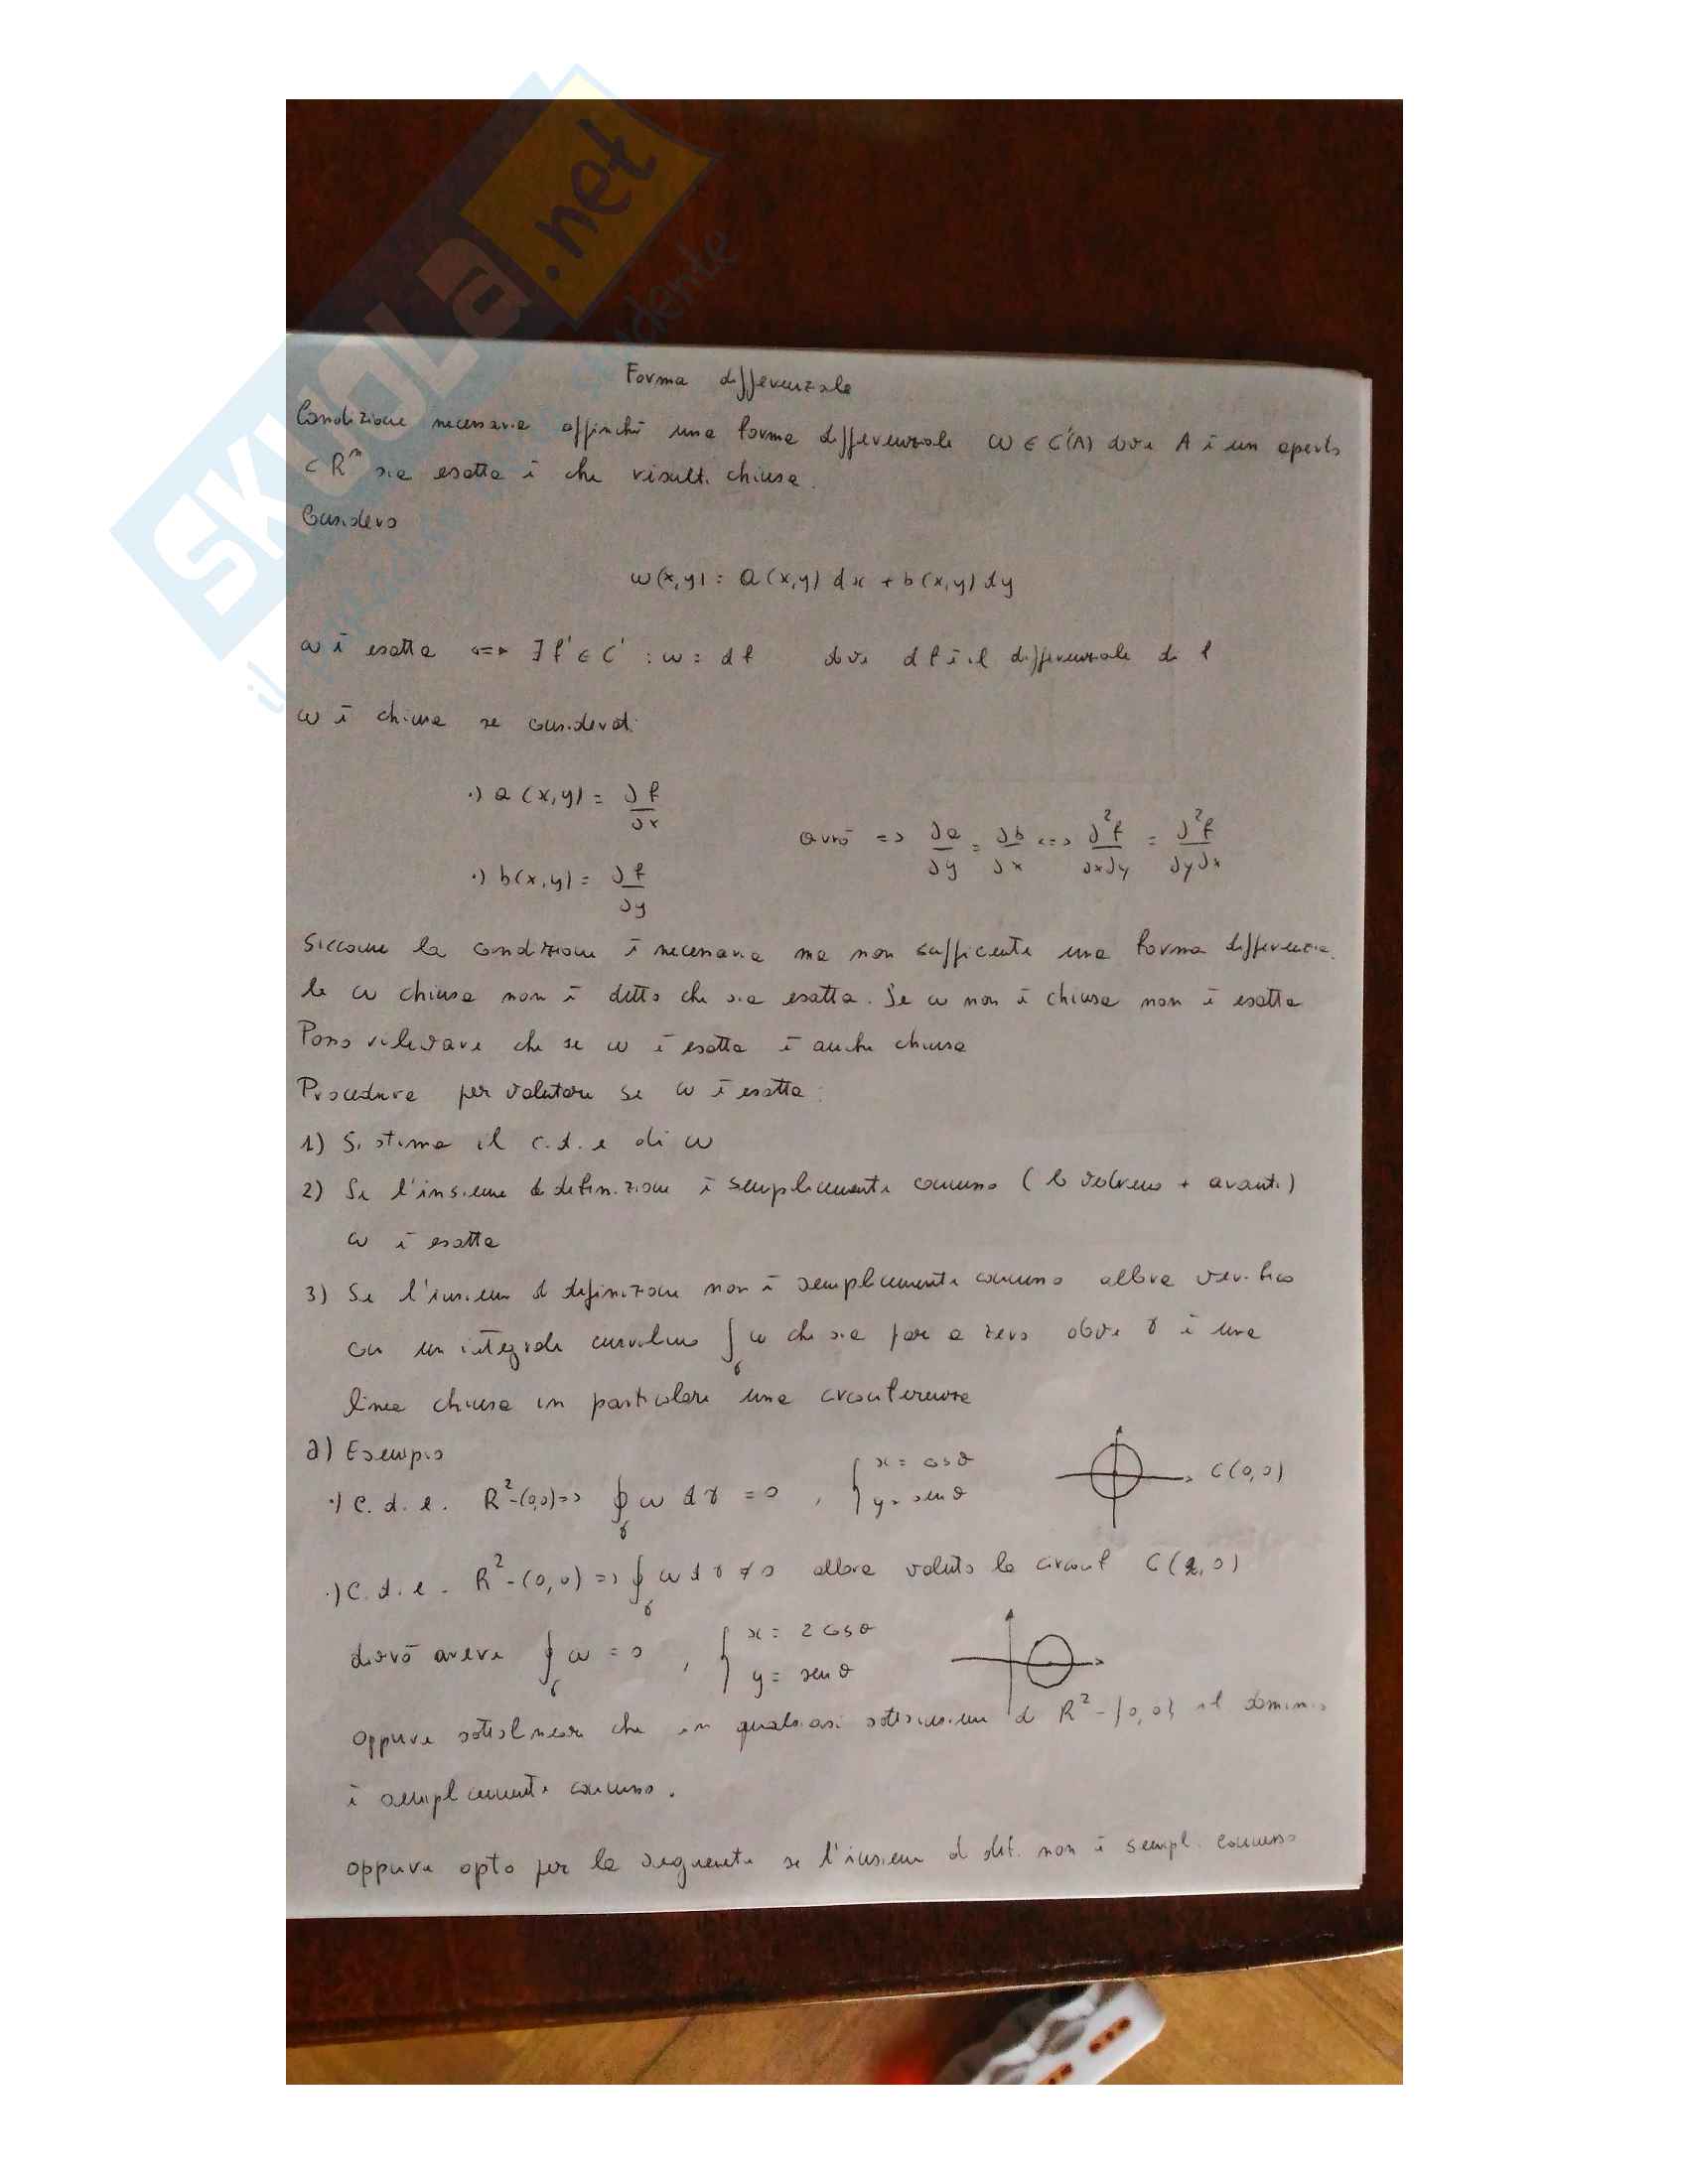 SKUOLa.net
Forma differenziale
Condizione necessaria affinché una forma differenziale ω ∈ C'(A) dove A è un aperto
⊂ Rⁿ sia esatta è che risulti chiusa.
Considero
ω(x,y) = a(x,y) dx + b(x,y) dy
ω è esatta <=> ∃ f ∈ C' : ω = df dove df è il differenziale di f
ω è chiusa se considerati
·) a(x,y) = ∂f/∂x
avrò => ∂a/∂y = ∂b/∂x <=> ∂²f/∂x∂y = ∂²f/∂y∂x
·) b(x,y) = ∂f/∂y
Siccome la condizione è necessaria ma non sufficiente una forma differenzia
le ω chiusa non è detto che sia esatta. Se ω non è chiusa non è esatta
Posso rilevare che se ω è esatta è anche chiusa
Procedura per valutare se ω è esatta:
1) Sistema il c.d.e di ω
2) Se l'insieme di definizione è semplicemente connesso (lo vedremo + avanti)
ω è esatta
3) Se l'insieme di definizione non è semplicemente connesso allora verifico
con un integrale curvilineo ∫γ ω che sia pari a zero dove γ è una
linea chiusa in particolare una circonferenza
a) Esempio
·) C.d.e. R²-(0,0) => ∮γ ω dγ = 0 , { x = cosθ y = senθ C(0,0)
·) C.d.e. R²-(0,0) => ∮γ ω dγ ≠ 0 allora valuto la circonf C(2,0)
dovrò avere ∫γ ω = 0 , { x = 2cosθ y = senθ
oppure sottolineare che in qualsiasi sottoinsieme di R²-{0,0} il dominio
è semplicemente connesso.
oppure opto per la seguente se l'insieme di def. non è sempl. connesso